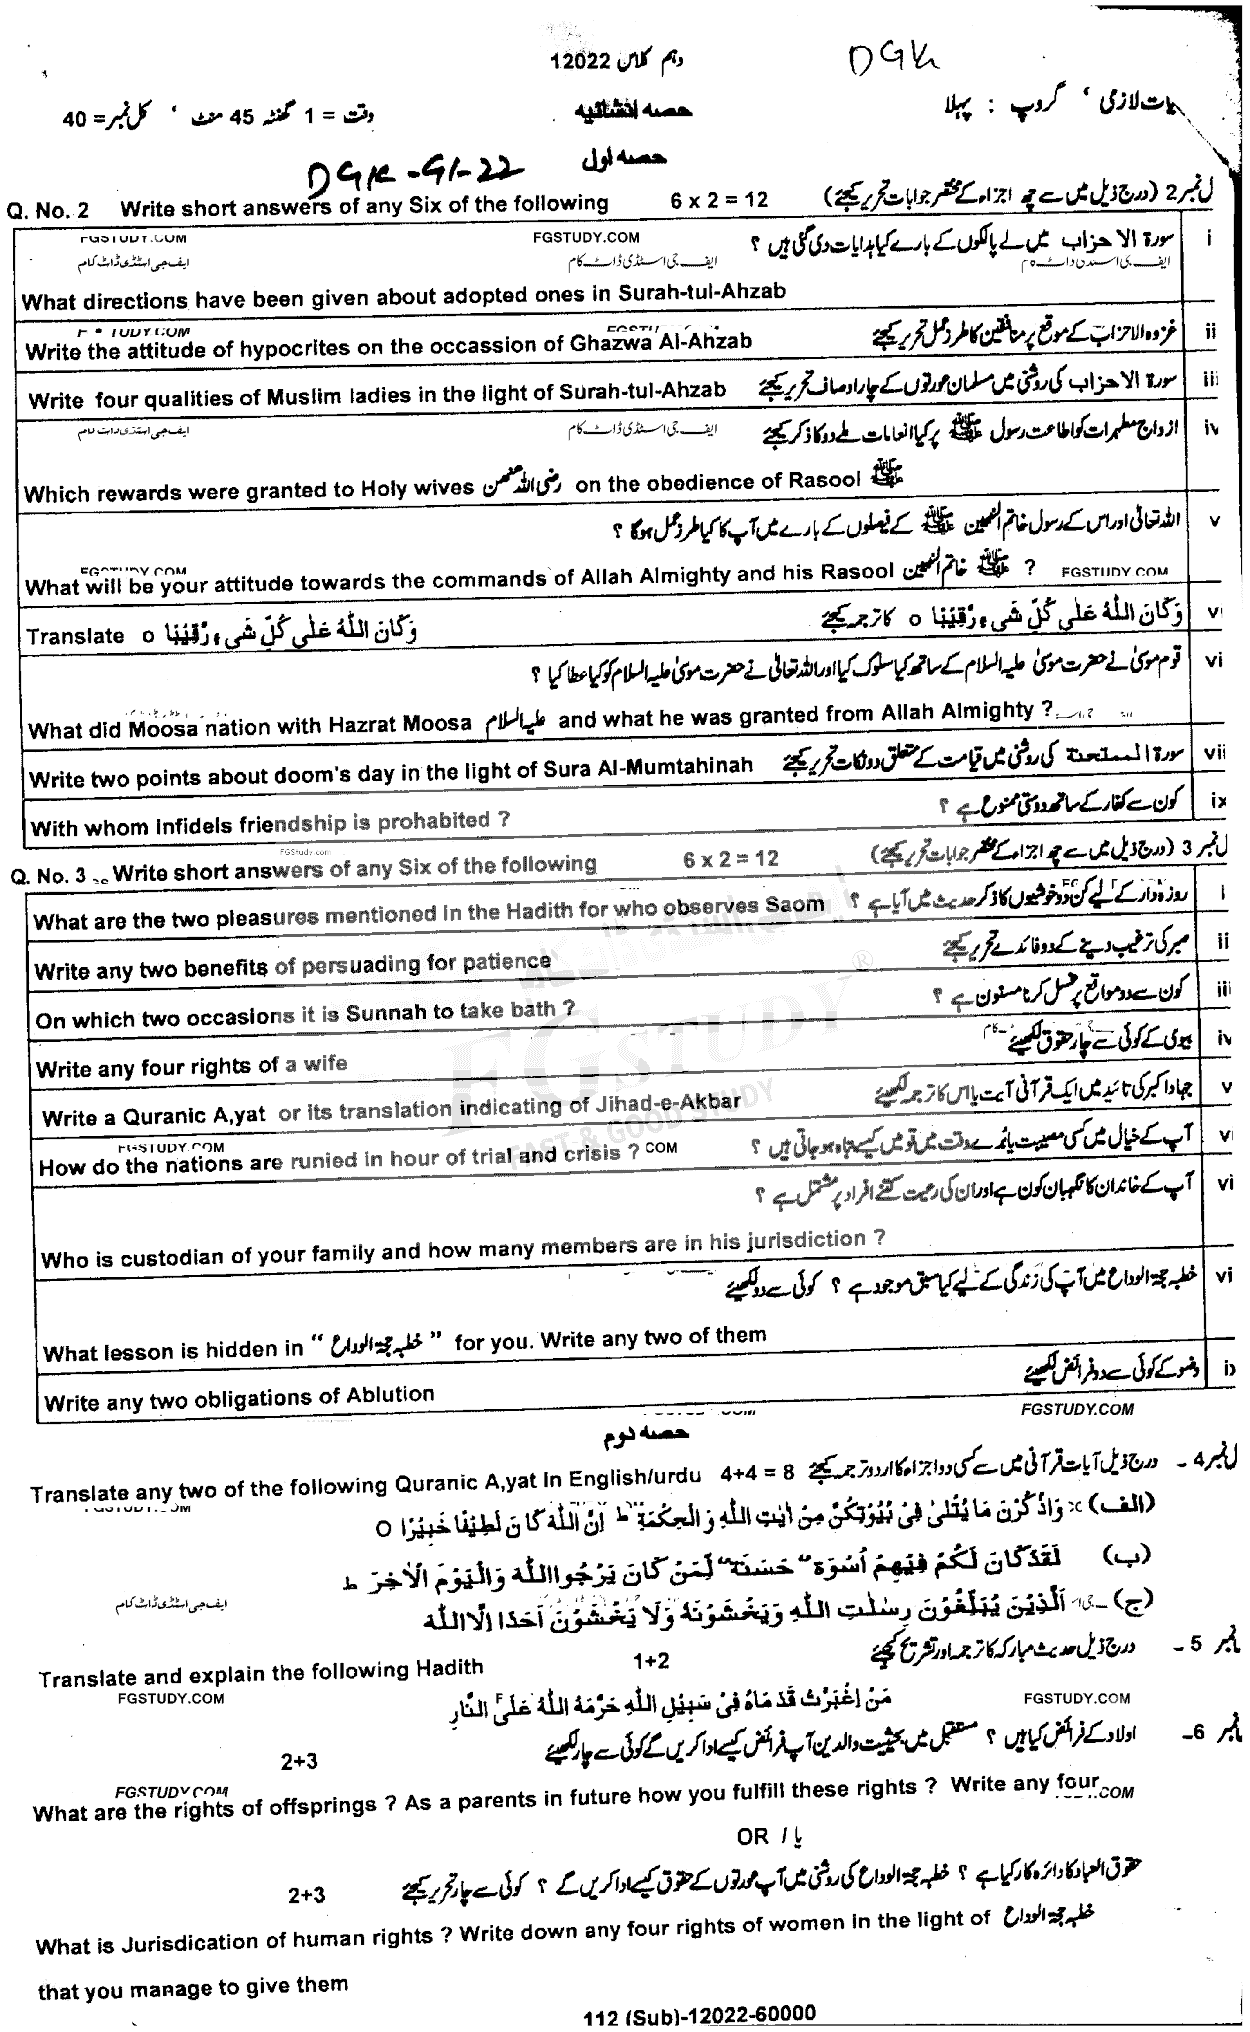 دہم کلاس 12022
DGK
یات لازمی ، گروپ : پہلا
حصہ انشائیہ
وقت = 1 گھنٹہ 45 منٹ ، کل نمبر = 40
حصہ اول
DGK-G1-22
ل نمبر 2 (درج ذیل میں سے چھ اجزاء کے مختصر جوابات تحریر کیجئے)
Q. No. 2 Write short answers of any Six of the following 6 x 2 = 12
FGSTUDY.COM FGSTUDY.COM
i سورۃ الاحزاب میں لے پالکوں کے بارے کیا ہدایات دی گئی ہیں ؟
ایف جی اسٹڈی ڈاٹ کام ایف جی اسٹڈی ڈاٹ کام
What directions have been given about adopted ones in Surah-tul-Ahzab
ii غزوہ الاحزاب کے موقع پر منافقین کا طرز عمل تحریر کیجئے
Write the attitude of hypocrites on the occassion of Ghazwa Al-Ahzab
iii سورۃ الاحزاب کی روشنی میں مسلمان عورتوں کے چار اوصاف تحریر کیجئے
Write four qualities of Muslim ladies in the light of Surah-tul-Ahzab
iv ازواج مطہرات کو اطاعت رسول ﷺ پر کیا انعامات ملے دو کا ذکر کیجئے
ایف جی اسٹڈی ڈاٹ کام ایف جی اسٹڈی ڈاٹ کام
Which rewards were granted to Holy wives رضی اللہ عنھن on the obedience of Rasool ﷺ
v اللہ تعالیٰ اور اس کے رسول خاتم النبیین ﷺ کے فیصلوں کے بارے میں آپ کا کیا طرز عمل ہوگا ؟
What will be your attitude towards the commands of Allah Almighty and his Rasool خاتم النبیین ﷺ ? FGSTUDY.COM
vi وَكَانَ اللّٰهُ عَلٰى كُلِّ شَىْءٍ رَّقِيْبًا o کا ترجمہ کیجئے
Translate o وَكَانَ اللّٰهُ عَلٰى كُلِّ شَىْءٍ رَّقِيْبًا
vi قوم موسیٰ نے حضرت موسیٰ علیہ السلام کے ساتھ کیا سلوک کیا اور اللہ تعالیٰ نے حضرت موسیٰ علیہ السلام کو کیا عطا کیا ؟
What did Moosa nation with Hazrat Moosa علیہ السلام and what he was granted from Allah Almighty ?
vii سورۃ الممتحنۃ کی روشنی میں قیامت کے متعلق دو نکات تحریر کیجئے
Write two points about doom's day in the light of Sura Al-Mumtahinah
ix کون سے کفار کے ساتھ دوستی ممنوع ہے ؟
With whom Infidels friendship is prohabited ?
FGStudy.com
ل نمبر 3 (درج ذیل میں سے چھ اجزاء کے مختصر جوابات تحریر کیجئے)
Q. No. 3 Write short answers of any Six of the following 6 x 2 = 12
i روزہ دار کے لیے کن دو خوشیوں کا ذکر حدیث میں آیا ہے ؟
What are the two pleasures mentioned in the Hadith for who observes Saom
ii صبر کی ترغیب دینے کے دو فائدے تحریر کیجئے
Write any two benefits of persuading for patience
iii کون سے دو مواقع پر غسل کرنا مسنون ہے ؟
On which two occasions it is Sunnah to take bath ?
iv بیوی کے کوئی سے چار حقوق لکھیئے
Write any four rights of a wife
v جہاد اکبر کی تائید میں ایک قرآنی آیت یا اس کا ترجمہ لکھیئے
Write a Quranic A,yat or its translation indicating of Jihad-e-Akbar
FG STUDY ®
FAST & GOOD STUDY
vi آپ کے خیال میں کسی مصیبت یا کڑے وقت میں قومیں کیسے تباہ ہو جاتی ہیں ؟
FGSTUDY.COM
How do the nations are runied in hour of trial and crisis ? COM
vi آپ کے خاندان کا نگہبان کون ہے اور ان کی رعیت کتنے افراد پر مشتمل ہے ؟
Who is custodian of your family and how many members are in his jurisdiction ?
vi خطبہ حجۃ الوداع میں آپ کی زندگی کے لیے کیا سبق موجود ہے ؟ کوئی سے دو لکھیئے
What lesson is hidden in “خطبہ حجۃ الوداع” for you. Write any two of them
ix وضو کے کوئی سے دو فرائض لکھیئے
Write any two obligations of Ablution
FGSTUDY.COM
حصہ دوم
ل نمبر 4 - درج ذیل آیات قرآنی میں سے کسی دو اجزاء کا اردو ترجمہ کیجئے
Translate any two of the following Quranic A,yat In English/urdu 4+4 = 8
(الف) وَاذْكُرْنَ مَا يُتْلٰى فِىْ بُيُوْتِكُنَّ مِنْ اٰيٰتِ اللّٰهِ وَالْحِكْمَةِ ط اِنَّ اللّٰهَ كَانَ لَطِيْفًا خَبِيْرًا o
(ب) لَقَدْ كَانَ لَكُمْ فِيْهِمْ اُسْوَةٌ حَسَنَةٌ لِّمَنْ كَانَ يَرْجُوا اللّٰهَ وَالْيَوْمَ الْاٰخِرَ ط
ایف جی اسٹڈی ڈاٹ کام
(ج) الَّذِيْنَ يُبَلِّغُوْنَ رِسٰلٰتِ اللّٰهِ وَيَخْشَوْنَهٗ وَلَا يَخْشَوْنَ اَحَدًا اِلَّا اللّٰهَ
نمبر 5 - درج ذیل حدیث مبارکہ کا ترجمہ اور تشریح کیجئے
Translate and explain the following Hadith 1+2
FGSTUDY.COM FGSTUDY.COM
مَنِ اغْبَرَّتْ قَدَمَاهُ فِىْ سَبِيْلِ اللّٰهِ حَرَّمَهُ اللّٰهُ عَلَى النَّارِ
نمبر 6- اولاد کے فرائض کیا ہیں ؟ مستقبل میں بحیثیت والدین آپ فرائض کیسے ادا کریں گے کوئی سے چار لکھیئے
2+3
FGSTUDY.COM
What are the rights of offsprings ? As a parents in future how you fulfill these rights ? Write any four
.COM
OR / یا
حقوق العباد کا دائرہ کار کیا ہے ؟ خطبہ حجۃ الوداع کی روشنی میں آپ عورتوں کے حقوق کیسے ادا کریں گے ؟ کوئی سے چار تحریر کیجئے
2+3
What is Jurisdication of human rights ? Write down any four rights of women in the light of خطبہ حجۃ الوداع
that you manage to give them
112 (Sub)-12022-60000